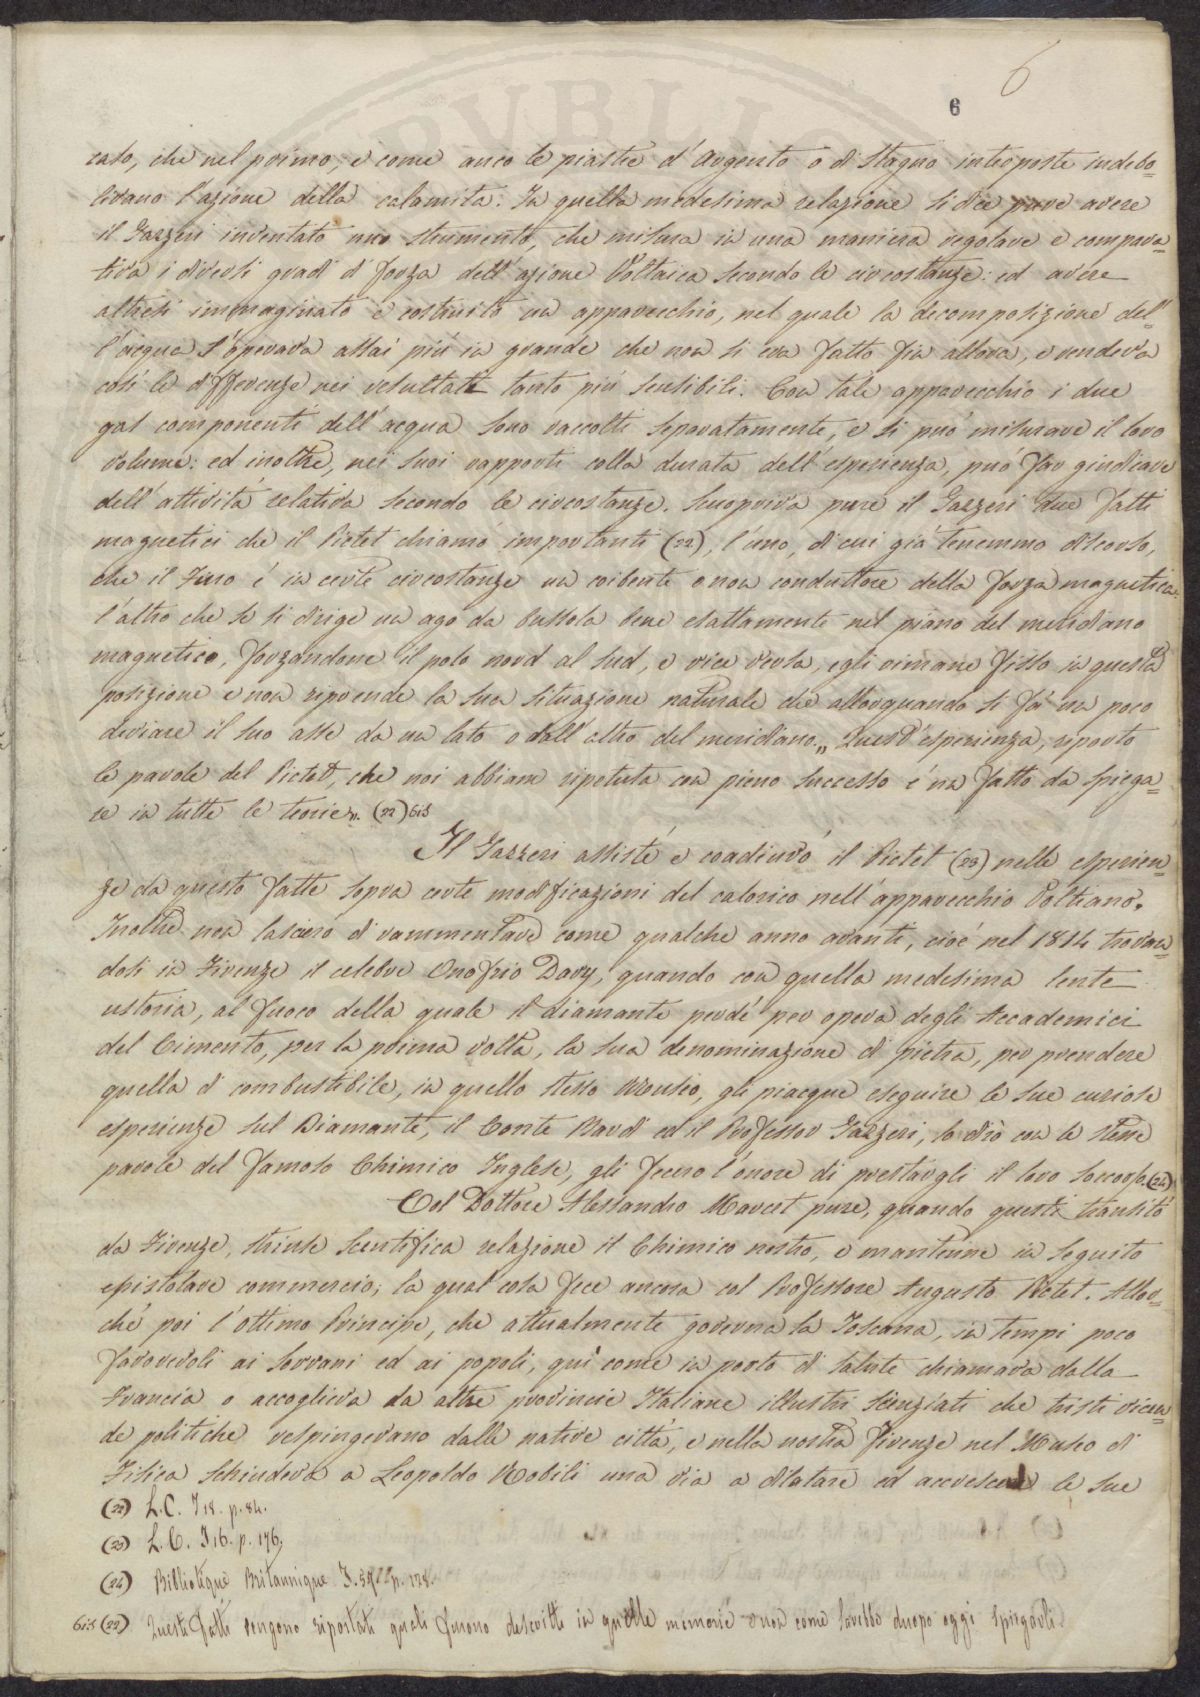 6
6
rato, che nel primo; e come anco le piastre d'Argento o di Stagno interposte indebo=
livano l'azione della calamita. In quella medesima relazione si dice pure avere
il Gazzeri inventato uno strumento, che misura in una maniera regolare e compara=
tiva i diversi gradi di forza dell'azione Voltaica secondo le circostanze: ed avere
altresì immaginato e costruito un apparecchio, nel quale la decomposizione del=
l'acqua s'operava assai più in grande che non si era fatto fin allora, e rendeva
così le differenze nei resultati tanto più sensibili. Con tale apparecchio i due
gas componenti dell'acqua sono raccolti separatamente, e si può misurare il loro
volume: ed inoltre, nei suoi rapporti colla durata dell'esperienza, può far giudicare
dell'attività relativa secondo le circostanze. Scuopriva pure il Gazzeri due fatti
magnetici che il Pictet chiamò importanti (22), l'uno, di cui già tenemmo discorso,
che il ferro è in certe circostanze un coibente o non conduttore della forza magnetica:
l'altro che se si dirige un ago da bussola bene esattamente nel piano del meridiano
magnetico, forzandone il polo nord al sud, e vice versa, egli rimane fisso in questa
posizione e non riprende la sua situazione naturale che allorquando si fà un poco
deviare il suo asse da un lato o dall'altro del meridiano. „ Quest'esperienza, riporto
le parole del Pictet, che noi abbiam ripetuta con pieno successo è un fatto da spiega=
re in tutte le teorie „. (22) bis
Il Gazzeri assisté e coadiuvò il Pictet (23) nelle esperien=
ze da questo fatte sopra certe modificazioni del calorico nell'apparecchio Voltiano.
Inoltre non lascerò di rammentare come qualche anno avanti, cioè nel 1814 trovan=
dosi in Firenze il celebre Onofrio Davy, quando con quella medesima lente
ustoria, al fuoco della quale il diamante perdé per opera degli Accademici
del Cimento, per la prima volta, la sua denominazione di pietra, per prendere
quella di combustibile, in quello stesso Museo, gli piacque eseguire le sue curiose
esperienze sul Diamante, il Conte Bardi ed il Professor Gazzeri, lo dirò con le stesse
parole del famoso Chimico Inglese, gli fecero l'onore di prestargli il loro soccorso. (24)
Col Dottore Alessandro Marcet pure, quando questi transitò
da Firenze, strinse scentifica relazione il Chimico nostro, e mantenne in seguito
epistolare commercio; la qual cosa fece ancora col Professore Augusto Pictet. Allor=
ché poi l'ottimo Principe, che attualmente governa la Toscana, in tempi poco
favorevoli ai Sovrani ed ai popoli, quì come in porto di salute chiamava dalla
Francia o accoglieva da altre provincie Italiane illustri scenziati che tristi vicen=
de politiche respingevano dalle native città, e nella nostra Firenze nel Museo di
Fisica schiudeva a Leopoldo Nobili una via a dilatare ed accrescere le sue
(22) L. C. T 18. p. 84.
(23) L. C. T 16. p. 176.
(24) Bibliotéque Britannique T. p. 128.
bis (22) Questi fatti vengono riportati quali furono descritti in quelle memorie e non come sarebbe duopo oggi spiegarli.